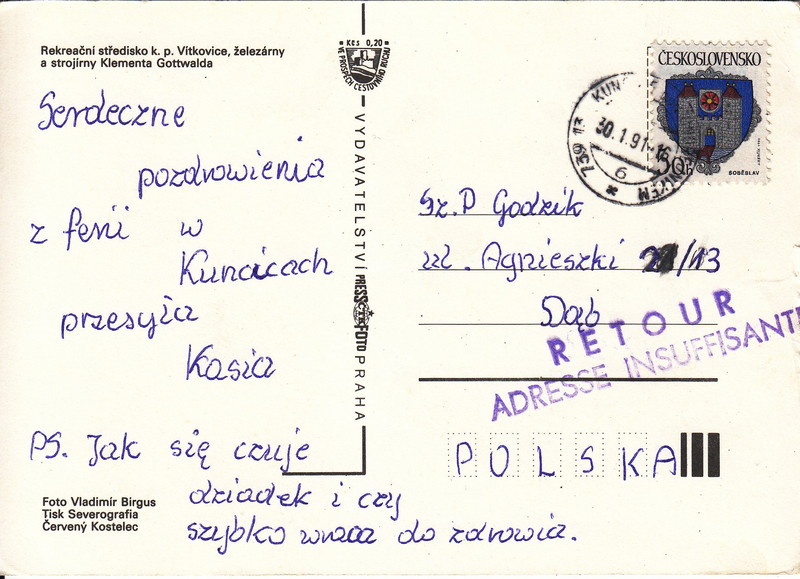 Rekreační středisko k. p. Vítkovice, železárny
a strojírny Klementa Gottwalda
Serdeczne
pozdrowienia
z ferii w
Kuncicach
przesyła
Kasia
PS. Jak się czuje
dziadek i czy
szybko wraca do zdrowia.
Foto Vladimír Birgus
Tisk Severografia
Červený Kostelec
Kčs 0,20
VE PROSPĚCH CESTOVNÍHO RUCHU
VYDAVATELSTVÍ PRESSFOTO PRAHA
ČESKOSLOVENSKO
50h
SOBĚSLAV
739 13 KUN
30.1.91-16
6
Sz.P Godzik
ul. Agnieszki /13
Dąb
RETOUR
ADRESSE INSUFFISANTE
POLSKA